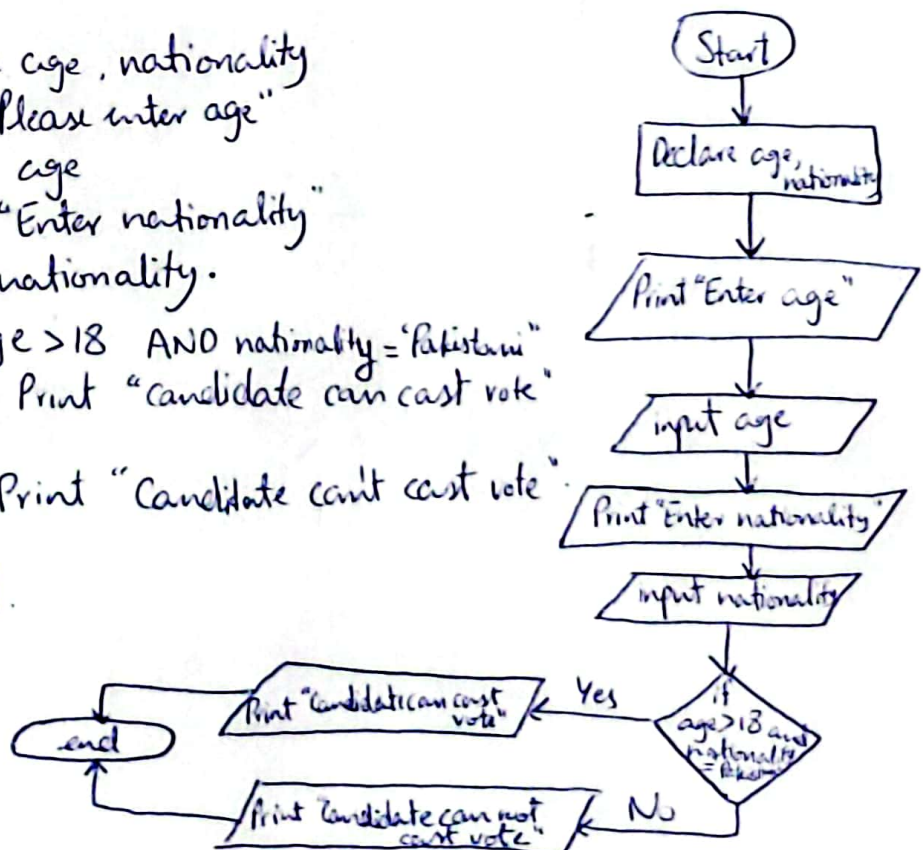 age, nationality
Please enter age"
age
"Enter nationality"
nationality.
e >18 AND nationality = "Pakistani"
Print "candidate can cast vote"
Print "Candidate can't cast vote".
Start
Declare age,
nationality
Print "Enter age"
input age
Print "Enter nationality"
input nationality
if
age>18 and
nationality
=
Yes
Print "Candidate can cast
vote"
end
No
Print "Candidate can not
cast vote"